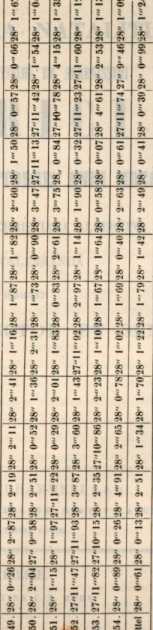 49. 28" 0'" 26 28" 2'" 87 28" 2'" 19 28" 2'" 11 28" 2'" 41 28" 1'" 16 28" 1'" 87 28" 1'" 82 28" 2'" 60 28" 1'" 50 28" 0'" 57 28" 0'" 66 28" 1'"
50. 28" 2'" 04 27" 9'" 58 28" 2'" 51 28" 0'" 52 28" 1'" 36 28" 2'" 31 1'" 73 28" 0'" 90 28" 3'" 47 27" 11'" 13 27" 11'" 42 28" 1'" 54 28" 1'"
51. 28" 1'" 15 28" 1'" 97 27" 11'" 22 28" 0'" 29 28" 2'" 01 28" 1'" 83 28" 0'" 83 28" 2'" 61 28" 3'" 75 28" 0'" 84 27" 10'" 78 28" 4'" 15 28" 1'"
52. 27" 11'" 47 27" 11'" 93 28" 3'" 87 28" 3'" 60 28" 1'" 43 27" 11'" 92 28" 2'" 97 28" 1'" 14 28" 1'" 90 28" 0'" 32 27" 11'" 23 27" 11'" 60 28" 1'"
53. 27" 11'" 82 27" 10'" 15 28" 2'" 35 27" 10'" 86 28" 2'" 23 28" 1'" 10 28" 1'" 67 28" 1'" 64 28" 0'" 58 28" 0'" 07 28" 4'" 61 28" 2'" 53 28" 1'"
54. 28" 0'" 89 28" 0'" 26 28" 4'" 91 28" 2'" 65 28" 0'" 78 28" 1'" 02 28" 1'" 69 28" 0'" 40 28" 2'" 63 28" 0'" 61 27" 11'" 74 27" 9'" 46 28" 1'"
ttel 28" 0'" 61 28" 0'" 13 28" 2'" 51 28" 1'" 34 28" 1'" 70 28" 1'" 22 28" 1'" 79 28" 1'" 42 28" 2'" 49 28" 0'" 41 28" 0'" 39 28" 0'" 99 28" 1'"